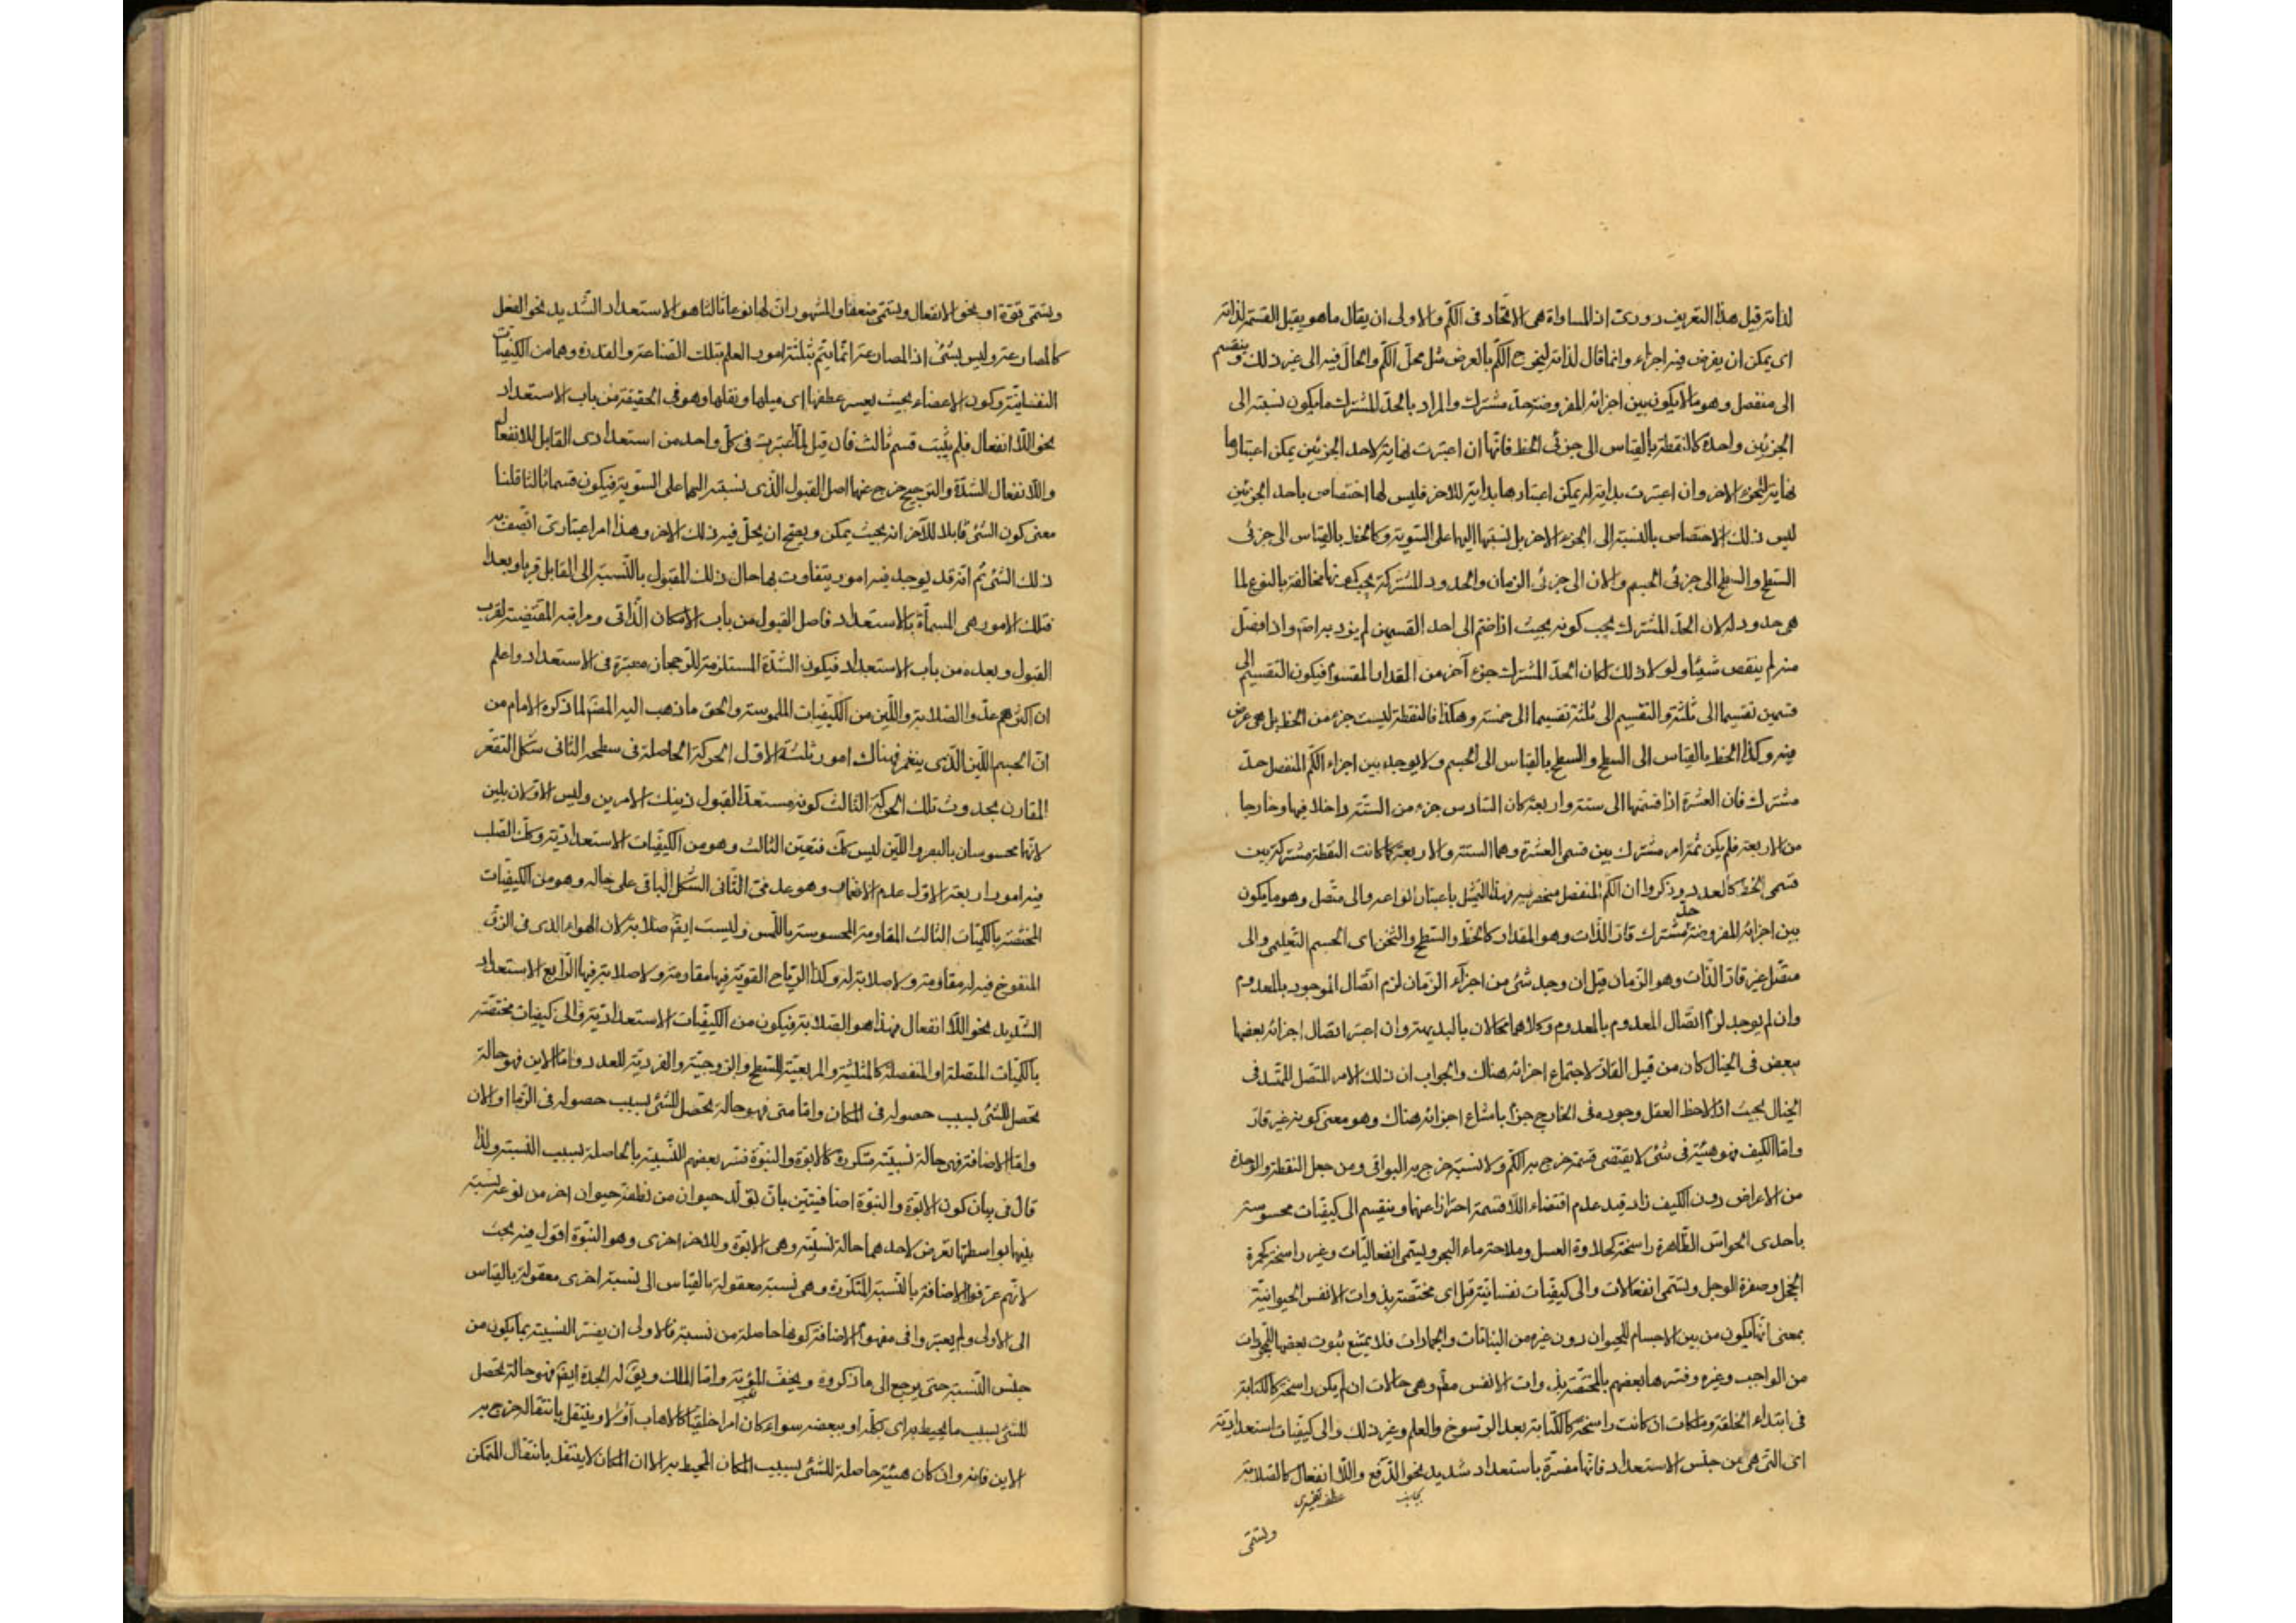 لذاته قيل هذا التعريف دورى اذ المساواة هى الاتحاد فى الكم والاولى ان يقال ما هو يقبل القسمة لذاته
اى يمكن ان يفرض فيه اجزاء وانما قال لذاته ليخرج الكم بالعرض مثل محل الكم والحال فيه الى غير ذلك وينقسم
الى منفصل وهو ما لا يكون بين اجزائه المفروضة حد مشترك والمراد بالحد المشترك ما يكون نسبته الى
الجزئين واحدة كالنقطة بالقياس الى جزئى الخط فانها ان اعتبرت نهاية لاحد الجزئين يمكن اعتبارها
نهاية للجزء الاخر وان اعتبرت بداية له يمكن اعتبارها بداية للاخر فليس لها اختصاص باحد الجزئين
ليس ذلك الاختصاص بالنسبة الى الجزء الاخر بل نسبتها اليهما على السوية وكالخط بالقياس الى جزئى
السطح والسطح الى جزئى الجسم والان الى جزئى الزمان والحدود المشتركة يجب كونها مخالفة بالنوع لما
هى حدود له لان الحد المشترك يجب كونه بحيث اذا ضم الى احد القسمين لم يزد به اصلا واذا فصل
منه لم ينقص شيئا ولولا ذلك لكان الحد المشترك جزء آخر من المقدار المقسوم فيكون التقسيم الى
قسمين تقسيما الى ثلثة والتقسيم الى ثلثة تقسيما الى خمسة وهكذا فالنقطة ليست جزء من الخط بل هى عرض
فيه وكذا الخط بالقياس الى السطح والسطح بالقياس الى الجسم ولا يوجد بين اجزاء الكم المنفصل حد
مشترك فان العشرة اذا قسمتها الى ستة واربعة كان السادس جزء من الستة داخلا فيها وخارجا
من الاربعة فلم يكن ثمة امر مشترك بين قسمى العشرة وهما الستة والاربعة كما كانت النقطة مشتركة بين
قسمى الخط كالعدد وذكروا ان الكم المنفصل منحصر فيه فهذا التمثيل باعتبار انواعه والى متصل وهو ما يكون
بين اجزائه المفروضة حد مشترك قار الذات وهو المقدار كالخط والسطح والثخن اى الجسم التعليمى والى
متصل غير قار الذات وهو الزمان قيل ان وجد شئ من اجزاء الزمان لزم اتصال الموجود بالمعدوم
وان لم يوجد لزم اتصال المعدوم بالمعدوم وكلاهما محالان بالبديهة وان اعتبر اتصال اجزائه بعضها
ببعض فى الخيال كان من قبيل القار لاجتماع اجزائه هناك والجواب ان ذلك الامر المتصل الممتد فى
الخيال بحيث اذا لاحظ العقل وجوده فى الخارج جزم بامتناع اجزائه هناك وهو معنى كونه غير قار
واما الكيف فهو هيئة فى شئ لا يقتضى قسمة خرج به الكم ولا نسبة خرج به البواقى ومن جعل النقطة والوحدة
من الاعراض دون الكيف زاد قيد عدم اقتضاء اللاقسمة احترازا عنهما وينقسم الى كيفيات محسوسة
باحدى الحواس الظاهرة راسخة كحلاوة العسل وملاحة ماء البحر ويسمى انفعاليات وغير راسخة كحمرة
الخجل وصفرة الوجل وتسمى انفعالات والى كيفيات نفسانية قيل اى مختصة بذوات الانفس الحيوانية
بمعنى انها يكون من بين الاجسام للحيوان دون غيره من النباتات والجمادات فلا يمتنع ثبوت بعضها للمجردات
من الواجب وغيره وفسرها بعضهم بالمختصة بذوات الانفس مطلقا وهى حالات ان لم يكن راسخة كالكتابة
فى ابتداء الخلقة وملكات ان كانت راسخة كالكتابة بعد الرسوخ والعلم وغير ذلك والى كيفيات استعدادية
اى التى هى من جنس الاستعداد فانها مفسرة باستعداد شديد نحو الدفع واللاانفعال كالصلابة
عطف تفسيرى
وتسمى
وتسمى قوة او نحو الانفعال وتسمى ضعفا والمشهور ان لها نوعا ثالثا هو الاستعداد الشديد نحو الفعل
كالمصارعة وليس بشئ اذ المصارعة انما يتم بثلثة امور العلم بتلك الصناعة والقدرة وهما من الكيفيات
النفسانية وكون الاعضاء بحيث يعسر عطفها اى ميلها ونقلها وهو فى الحقيقة من باب الاستعداد
نحو اللاانفعال فلم يثبت قسم ثالث فان قيل لما اعتبرت فى كل واحد من استعدادى القابل للانفعال
واللاانفعال الشدة والترجيح خرج عنها اصل القبول الذى نسبته اليهما على السوية فيكون قسما ثالثا قلنا
معنى كون الشئ قابلا للآخر انه بحيث يمكن ويصح ان يحل فيه ذلك الاخر وهذا امر اعتبارى اتصف به
ذلك الشئ ثم انه قد يوجد فيه امور يتفاوت بها حال ذلك المقبول بالنسبة الى القابل قربا وبعدا
فتلك الامور هى المسماة بالاستعداد فاصل القبول من باب الامكان الذاتى ومراتبه المقتضية لقرب
القبول وبعده من باب الاستعداد فيكون الشدة المستلزمة للرجحان معتبرة فى الاستعداد واعلم
ان اكثرهم عدوا الصلابة واللين من الكيفيات الملموسة والحق ما ذهب اليه المصنف لما ذكره الامام من
ان الجسم اللين الذى ينغمز فهناك امور ثلثة الاول الحركة الحاصلة فى سطحه الثانى شكل التقعر
المقارن بحدوث تلك الحركة الثالث كونه مستعدا لقبول ذينك الامرين وليس الاولان بلين
لانهما محسوسان بالبصر واللين ليس كك فتعين الثالث وهو من الكيفيات الاستعدادية وكك الصلب
فيه امور اربعة الاول عدم الانغماز وهو عدمى الثانى الشكل الباقى على حاله وهو من الكيفيات
المختصة بالكميات الثالث المقاومة المحسوسة باللمس وليست ايضا صلابة لان الهواء الذى فى الزق
المنفوخ فيه له مقاومة ولا صلابة له وكذا الرياح القوية فيها مقاومة ولا صلابة فيها الرابع الاستعداد
الشديد نحو اللاانفعال فهذا هو الصلابة فيكون من الكيفيات الاستعدادية والى كيفيات مختصة
بالكميات المتصلة او المنفصلة كالمثلثية والمربعية للسطح والزوجية والفردية للعدد واما الاين فهو حالة
تحصل للشئ بسبب حصوله فى المكان واما متى فهو حالة تحصل للشئ بسبب حصوله فى الزمان او الان
واما الاضافة فهى حالة نسبية متكررة كالابوة والبنوة فسر بعضهم النسبية بالحاصلة بسبب النسبة ولذا
قال فى بيان كون الابوة والبنوة اضافيتين بان تولد حيوان من نطفة حيوان اخر من نوعه نسبة
بينهما بواسطتها تعرض لاحدهما حالة نسبية وهى الابوة وللاخر اخرى وهو البنوة اقول فيه بحث
لانهم عرفوا الاضافة بالنسبة المتكررة وهى نسبة معقولة بالقياس الى نسبة اخرى معقولة بالقياس
الى الاولى ولم يعتبروا فى مفهوم الاضافة كونها حاصلة من نسبة فالاولى ان يفسر النسبية بما يكون من
جنس النسبة حتى يرجع الى ما ذكروه ويخف المؤنة واما الملك ويق له الجدة ايضا فهو حالة تحصل
للشئ بسبب ما يحيط به اى بكله او ببعضه سواء كان امرا خلقيا كالاهاب او لا وينتقل بانتقاله خرج به
الاين فانه وان كان هيئة حاصلة للشئ بسبب المكان المحيط به الا ان المكان لا ينتقل بانتقال المتمكن